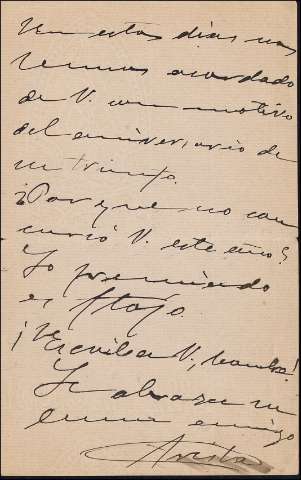 En estos días nos
hemos acordado
de V. con motivo
del aniversario de
su triunfo.
¿Por qué no con
currió V. este año?
Lo premiado
es flojo.
¡Escriba V., hombre!
Le abraza su
buen amigo